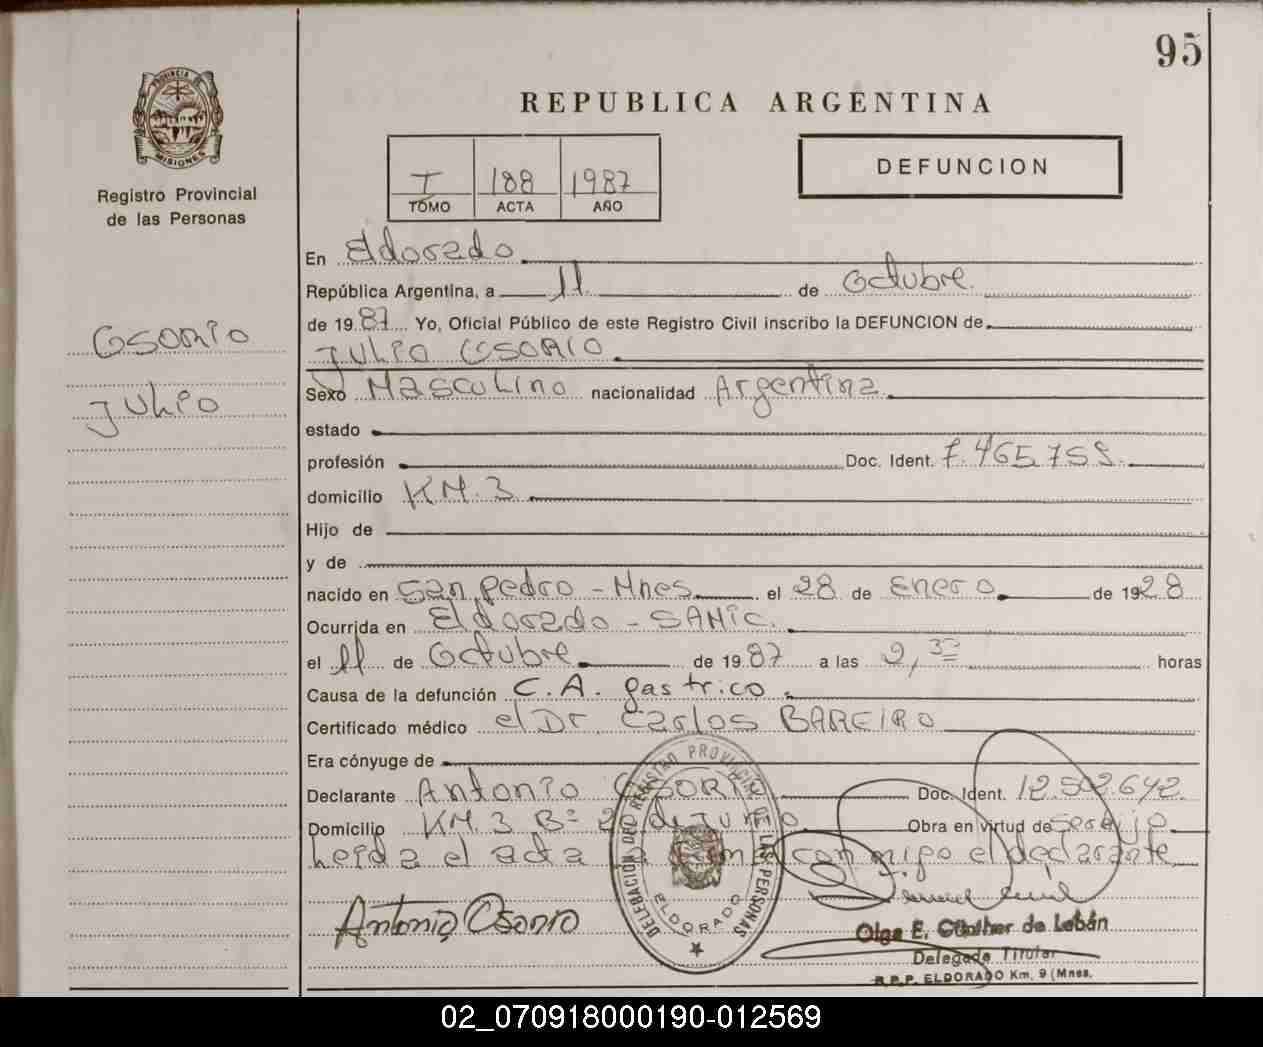 95
REPUBLICA ARGENTINA
PROVINCIA DE
MISIONES
Registro Provincial
de las Personas
I 188 1987
TOMO ACTA AÑO
DEFUNCION
Osorio
Julio
En Eldorado
República Argentina, a 11 de Octubre
de 1987 Yo, Oficial Público de este Registro Civil inscribo la DEFUNCION de
JULIO OSORIO
Sexo Masculino nacionalidad Argentina
estado
profesión Doc. Ident. 7.465.759.
domicilio KM. 3
Hijo de
y de
nacido en San Pedro - Mnes. el 28 de Enero de 1928
Ocurrida en Eldorado - SAMIC.
el 11 de Octubre de 1987 a las 2,30 horas
Causa de la defunción C.A. gastrico
Certificado médico el Dr. Carlos BAREIRO
Era cónyuge de
Declarante Antonio OSORIO Doc. Ident. 12.502.642.
Domicilio KM. 3 Bº 2 de Junio Obra en virtud de ser hijo
heida el acta la firma con migo el declarante
Antonio Osorio
DELEGACION DEL REGISTRO PROVINCIAL DE LAS PERSONAS
ELDORADO
Olga E. Günther de Lebán
Delegada Titular
R.P.P. ELDORADO Km. 9 (Mnes.
02_070918000190-012569